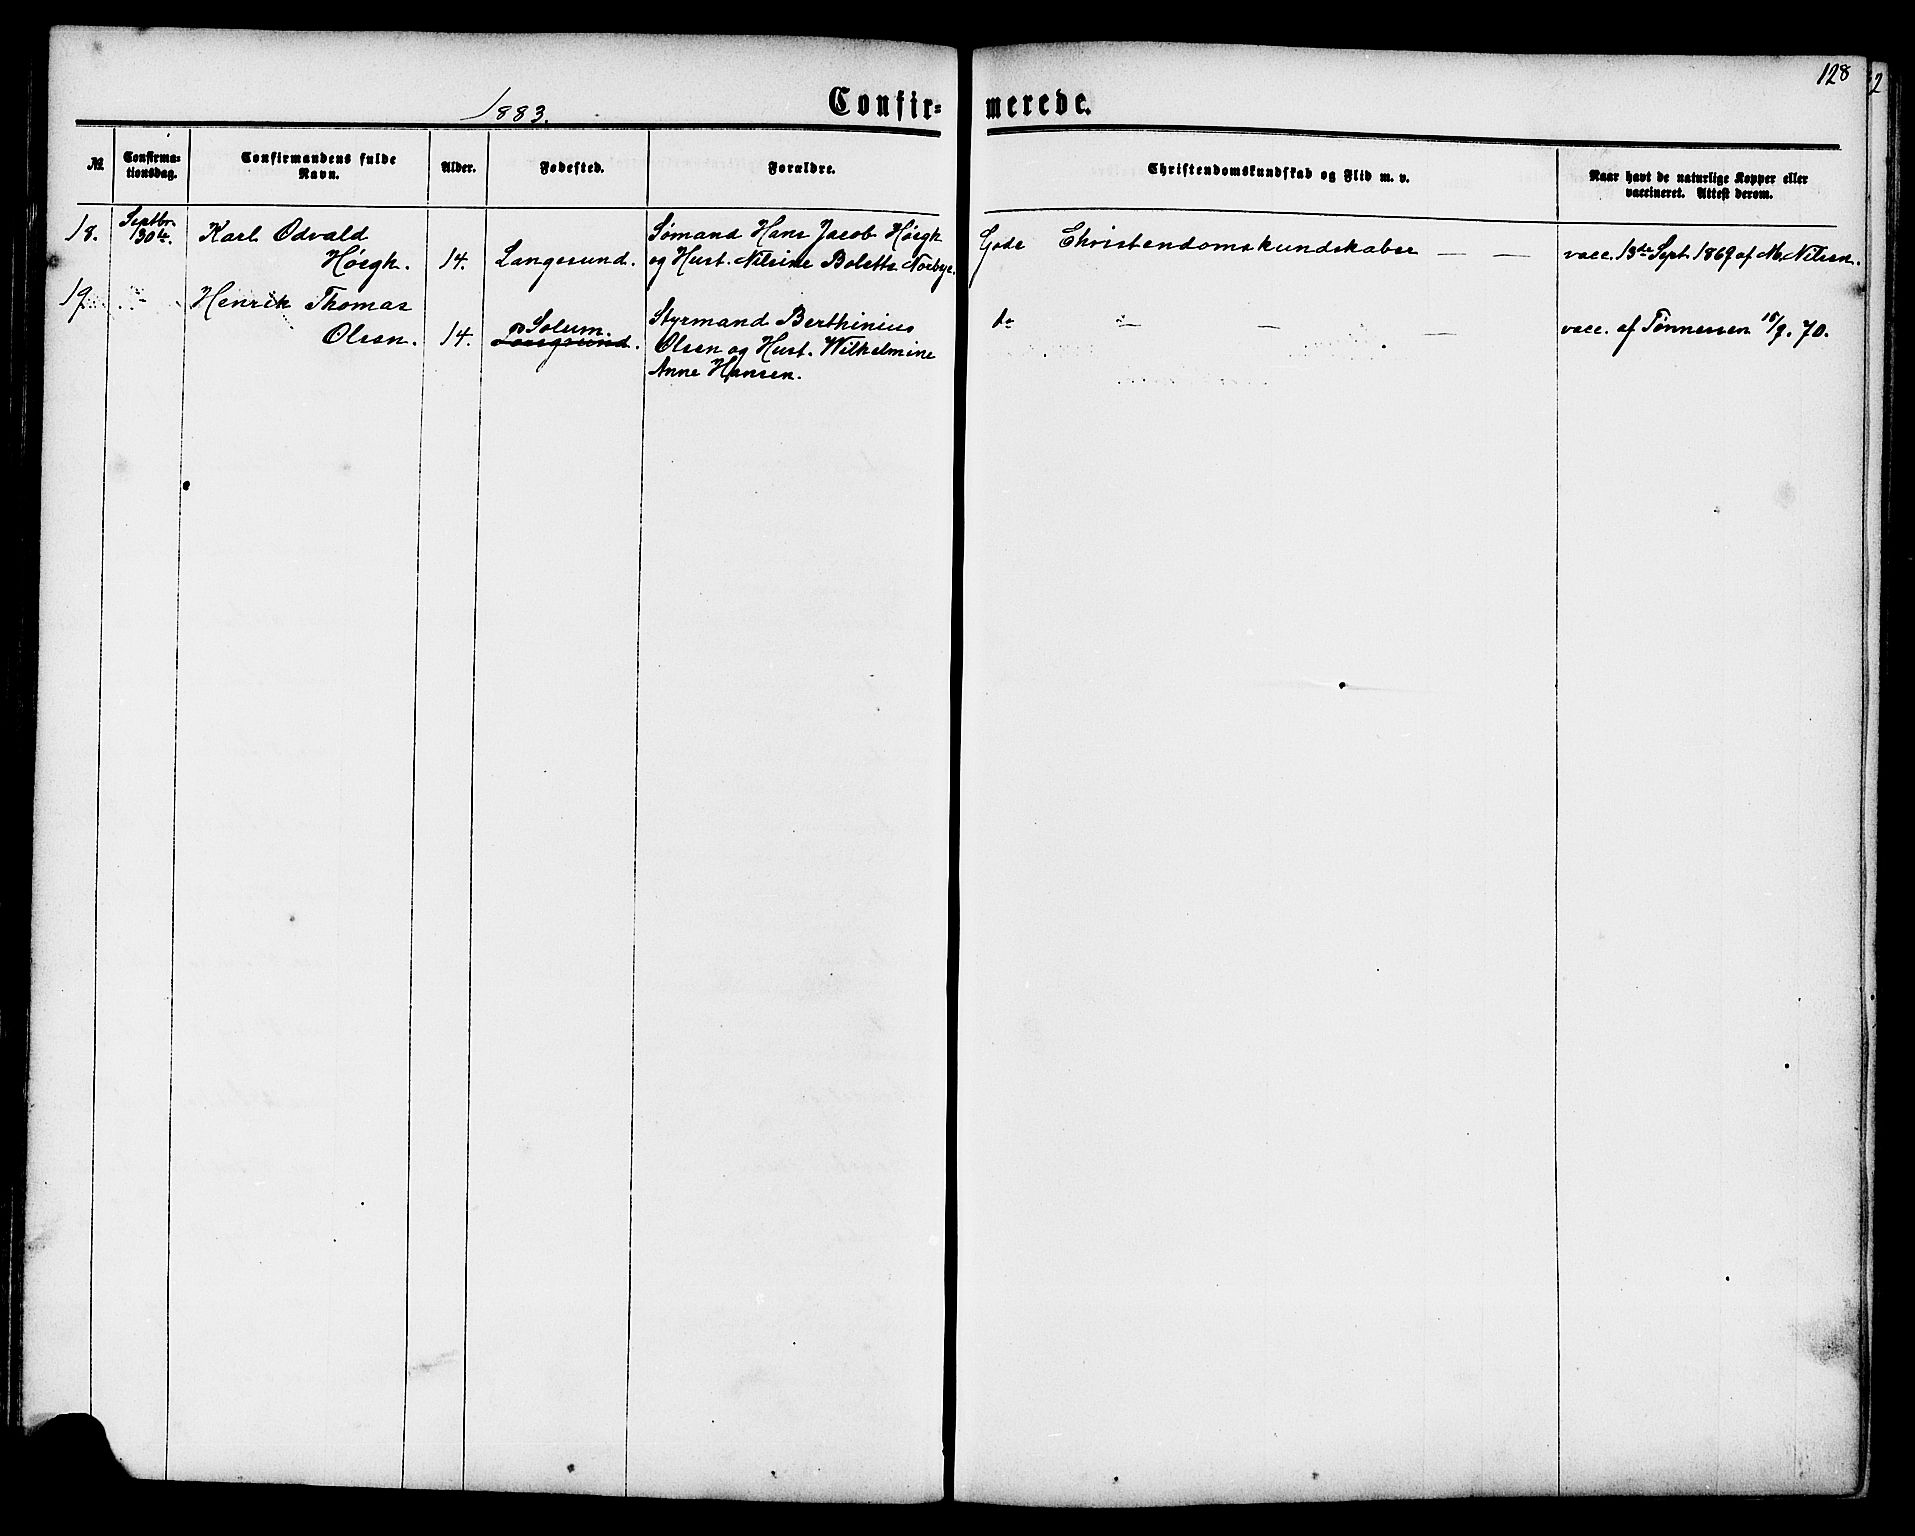 128
2
1883.
Confir- merede.
№.
Confirma-
tionsdag.
Confirmandens fulde
Navn.
Alder.
Fødested.
Forældre.
Christendomskundskab og Flid m. v.
Naar havt de naturlige Kopper eller
vaccineret. Attest derom.
18.
Septbr.
30te.
Karl Odvald
Høegh.
14.
Langesund.
Sømand Hans Jacob Høegh
og Hust. Nilsine Bolette Norbye.
Gode Christendomskundskaber — —
vacc. 13de Sept. 1869 af M. Nilsen.
19.
Henrik Thomas
Olsen.
14.
Solum.
Langesund.
Styrmand Berthinius
Olsen og Hust. Wilhelmine
Anne Hansen.
do — — —
vacc. af Tønnessen 15/9. 70.